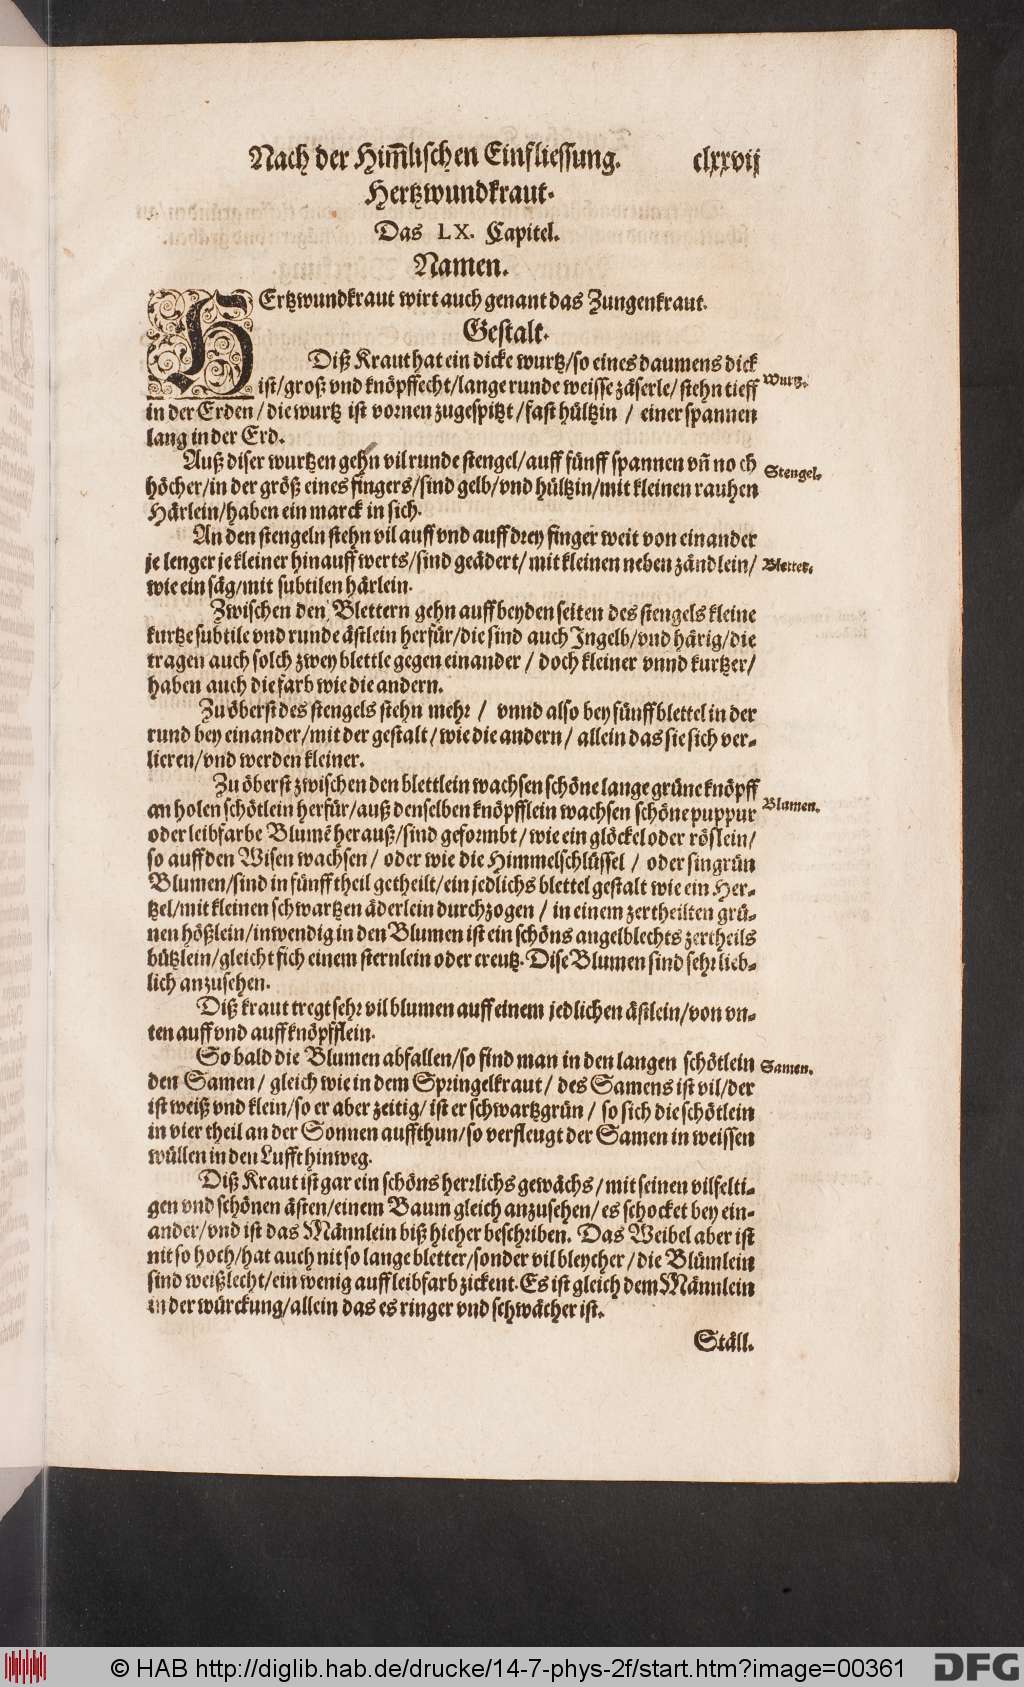 Nach der Him̃lischen Einfliessung. clxxvij
Hertzwundkraut.
Das LX. Capitel.
Namen.
HErtzwundkraut wirt auch genant das Zungenkraut.
Gestalt.
Diß Kraut hat ein dicke wurtz/so eines daumens dick
ist/groß vnd knöpffecht/lange runde weisse zäserle/stehn tieff
Wurtz.
in der Erden/die wurtz ist vornen zugespitzt/fast hültzin/ einer spannen
lang in der Erd.
Auß diser wurtzen gehn vil runde stengel/auff fünff spannen vñ noch
Stengel.
höcher/in der größ eines fingers/sind gelb/vnd hültzin/mit kleinen rauhen
Härlein/haben ein marck in sich.
An den stengeln stehn vil auff vnd auff drey finger weit von einander
je lenger je kleiner hinauffwerts/sind geädert/mit kleinen neben zändlein/
Bletter.
wie ein säg/mit subtilen härlein.
Zwischen den Blettern gehn auff beyden seiten des stengels kleine
kurtze subtile vnd runde ästlein herfür/die sind auch Ingelb/vnd härig/die
tragen auch solch zwey blettle gegen einander/ doch kleiner vnnd kurtzer/
haben auch die farb wie die andern.
Zu öberst des stengels stehn mehr/ vnnd also bey fünff blettel in der
rund bey einander/mit der gestalt/wie die andern/ allein das sie sich ver-
lieren/vnd werden kleiner.
Zu öberst zwischen den blettlein wachsen schöne lange grüne knöpff
an holen schötlein herfür/auß denselben knöpfflein wachsen schöne puppur
Blumen.
oder leibfarbe Blumẽ herauß/sind geformbt/wie ein glöckel oder röslein/
so auff den Wisen wachsen/ oder wie die Himmelschlüssel/ oder singrün
Blumen/sind in fünff theil getheilt/ein jedlichs blettel gestalt wie ein Her-
tzel/mit kleinen schwartzen äderlein durchzogen/ in einem zertheilten grü-
nen hößlein/inwendig in den Blumen ist ein schöns angelblechts zertheils
bützlein/gleicht sich einem sternlein oder creutz. Dise Blumen sind sehr lieb-
lich anzusehen.
Diß kraut tregt sehr vil blumen auff einem jedlichen ästlein/von vn-
ten auff vnd auff knöpfflein.
So bald die Blumen abfallen/so find man in den langen schötlein
Samen.
den Samen/ gleich wie in dem Springelkraut/ des Samens ist vil/der
ist weiß vnd klein/so er aber zeitig/ ist er schwartzgrün/ so sich die schötlein
in vier theil an der Sonnen auffthun/so verfleugt der Samen in weissen
wüllen in den Lufft hinweg.
Diß Kraut ist gar ein schöns herrlichs gewächs/mit seinen vilfelti-
gen vnd schönen ästen/einem Baum gleich anzusehen/es schocket bey ein-
ander/vnd ist das Männlein biß hieher beschriben. Das Weibel aber ist
nit so hoch/hat auch nit so lange bletter/sonder vil bleycher/die Blümlein
sind weißlecht/ein wenig auff leibfarb zickent. Es ist gleich dem Männlein
in der würckung/allein das es ringer vnd schwächer ist.
Ställ.
© HAB http://diglib.hab.de/drucke/14-7-phys-2f/start.htm?image=00361
DFG